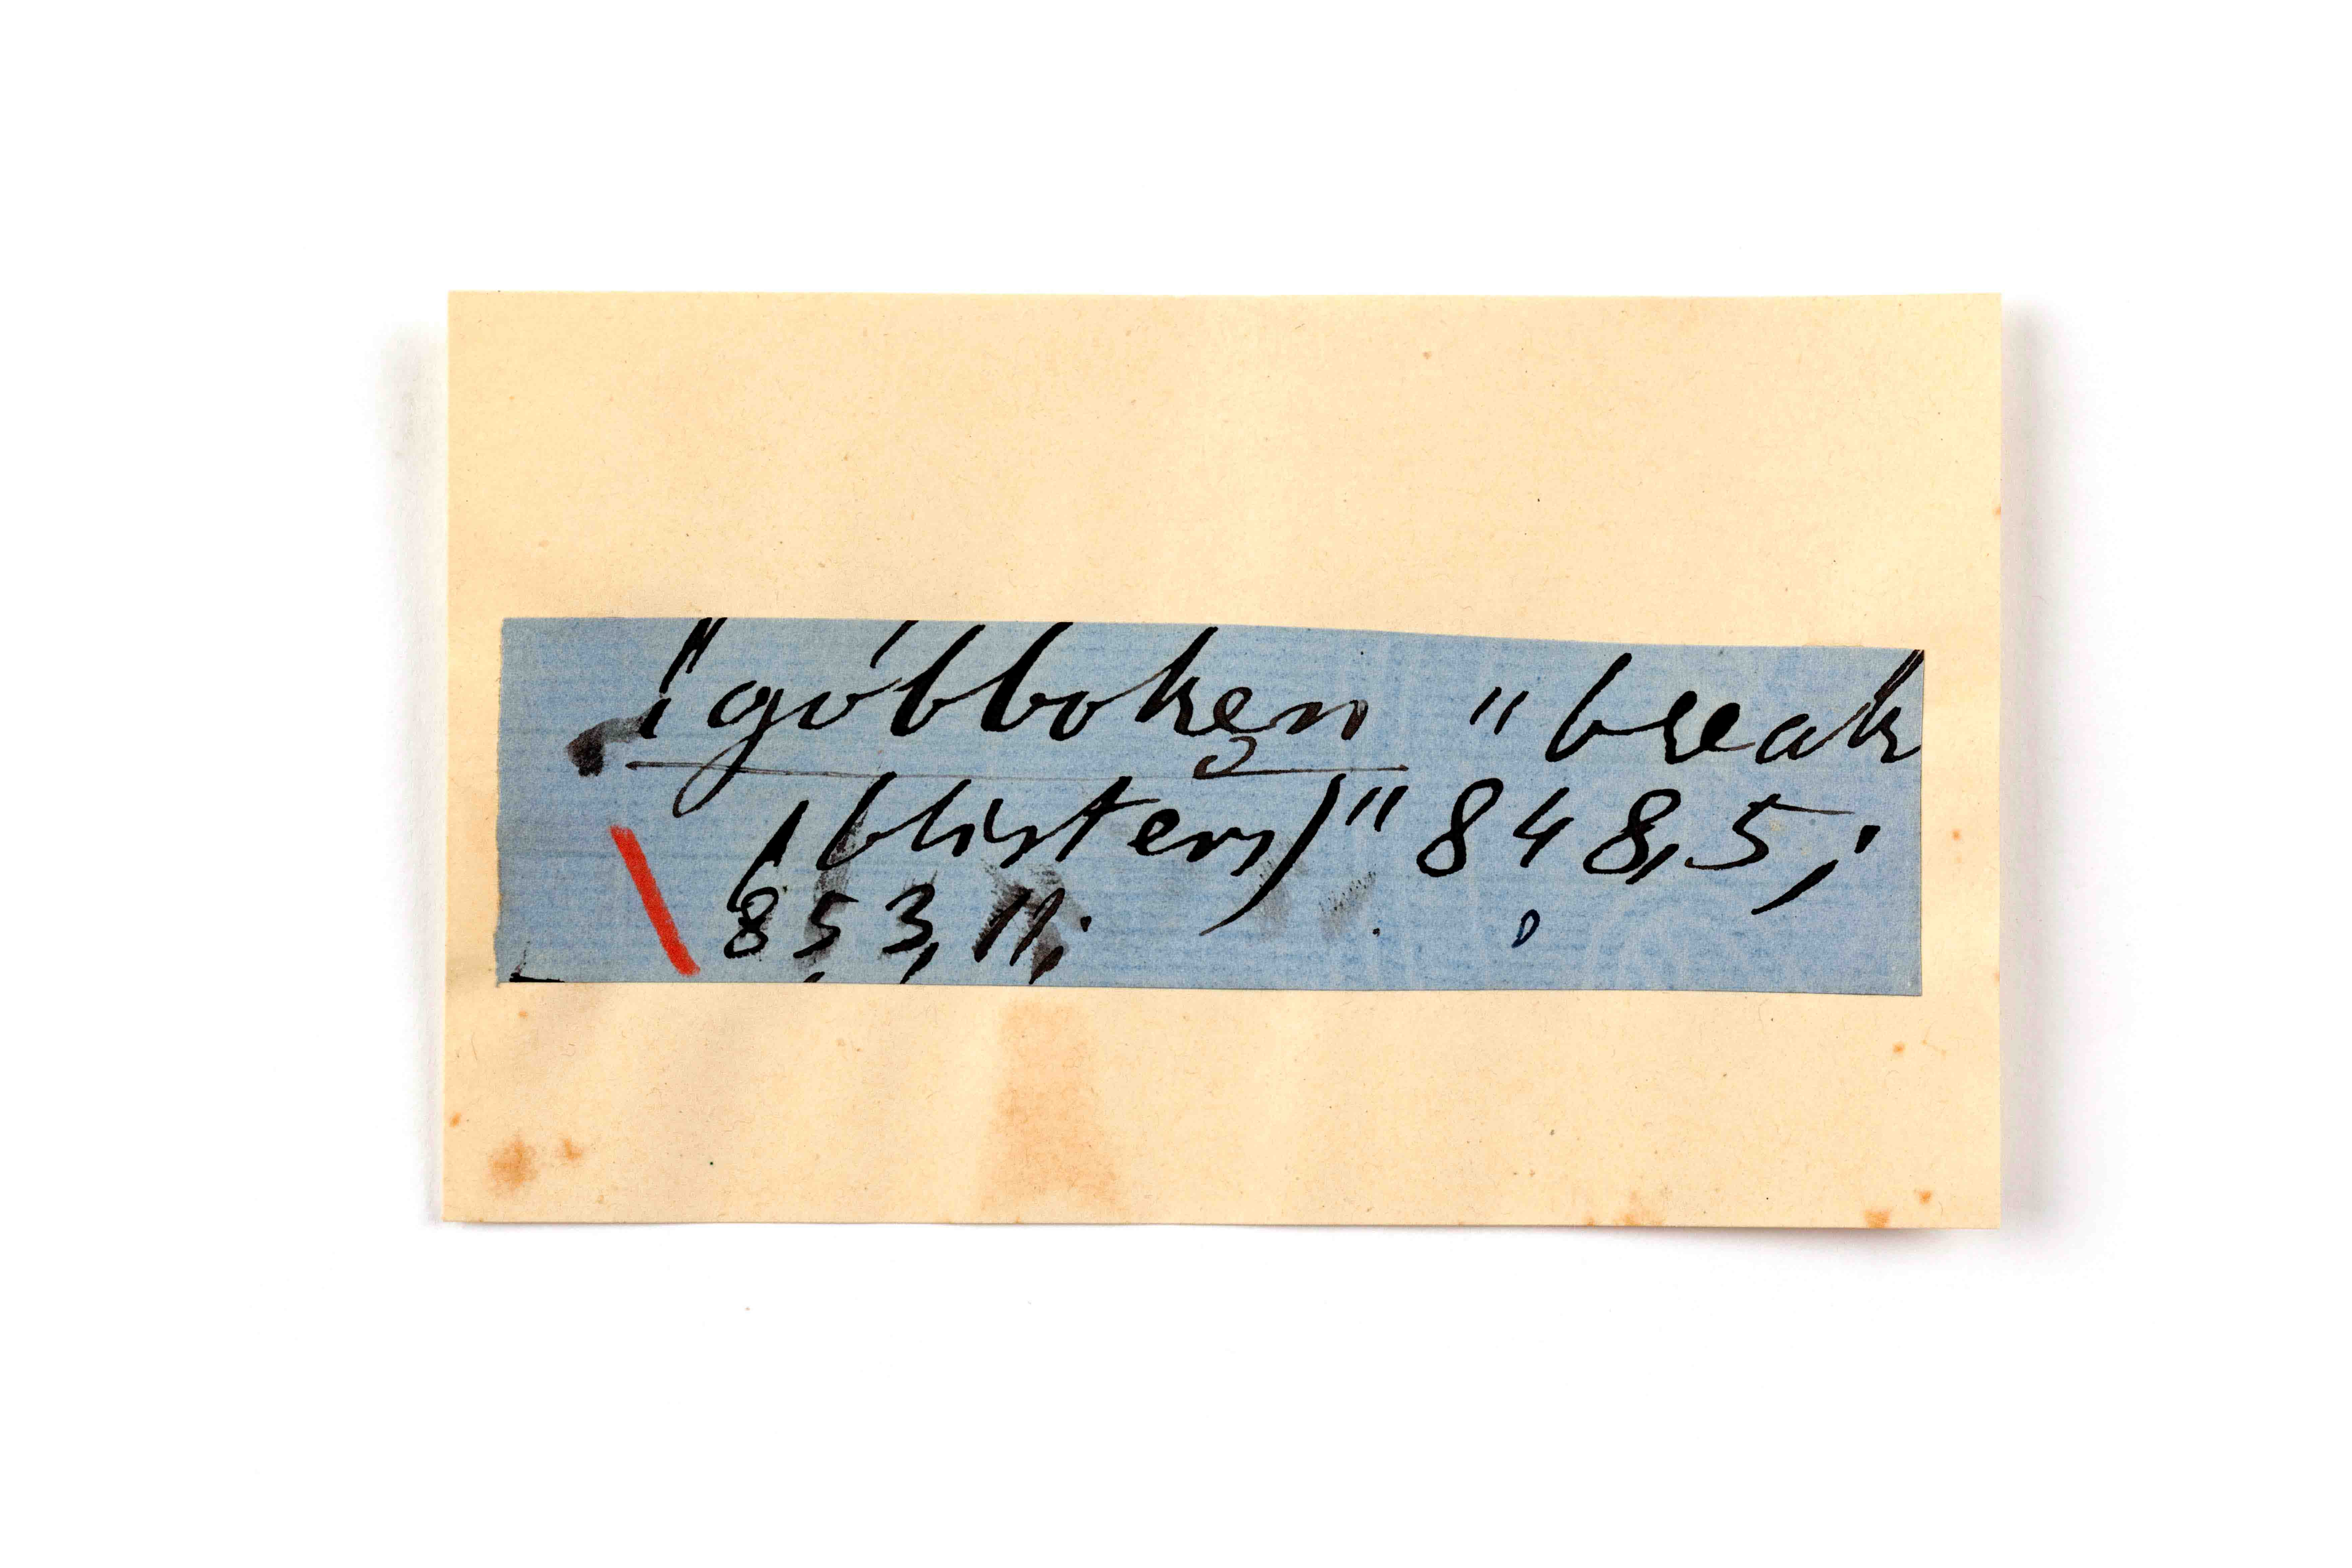 "góbboken "break
(blisters)" 848,5;
853,11;